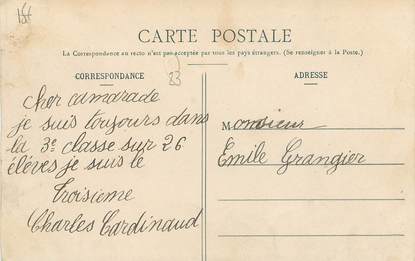 CARTE POSTALE
La Correspondance au recto n'est pas acceptée par tous les pays étrangers. (Se renseigner à la Poste.)
CORRESPONDANCE
23
cher camarade
je suis toujours dans
la 3e classe sur 26
élèves je suis le
Troisieme
Charles Cardinaud
ADRESSE
Monsieur
Emile Grangier